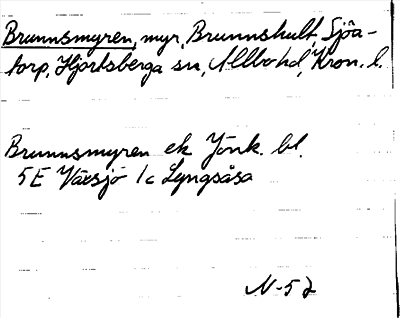 Brunnsmyren, myr, Brunnshult, Sjöa-
torp, Hjortsberga sn, Allbo hd, Kron. l.
Brunnsmyren ek Jönk. bl.
5E Växsjö 1c Lyngsåsa
N-52